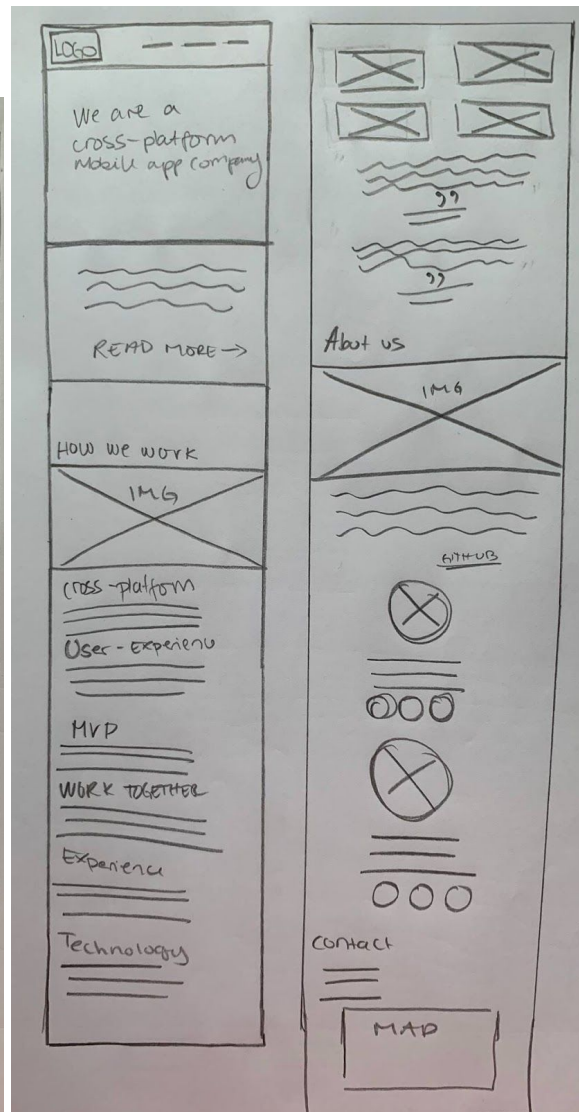 LOGO
We are a
cross-platform
Mobile app company
READ MORE →
How we work
IMG
Cross-platform
User-Experienu
MVP
WORK TOGETHER
Experience
Technology
,,
,,
About us
IMG
GITHUB
Contact
MAP